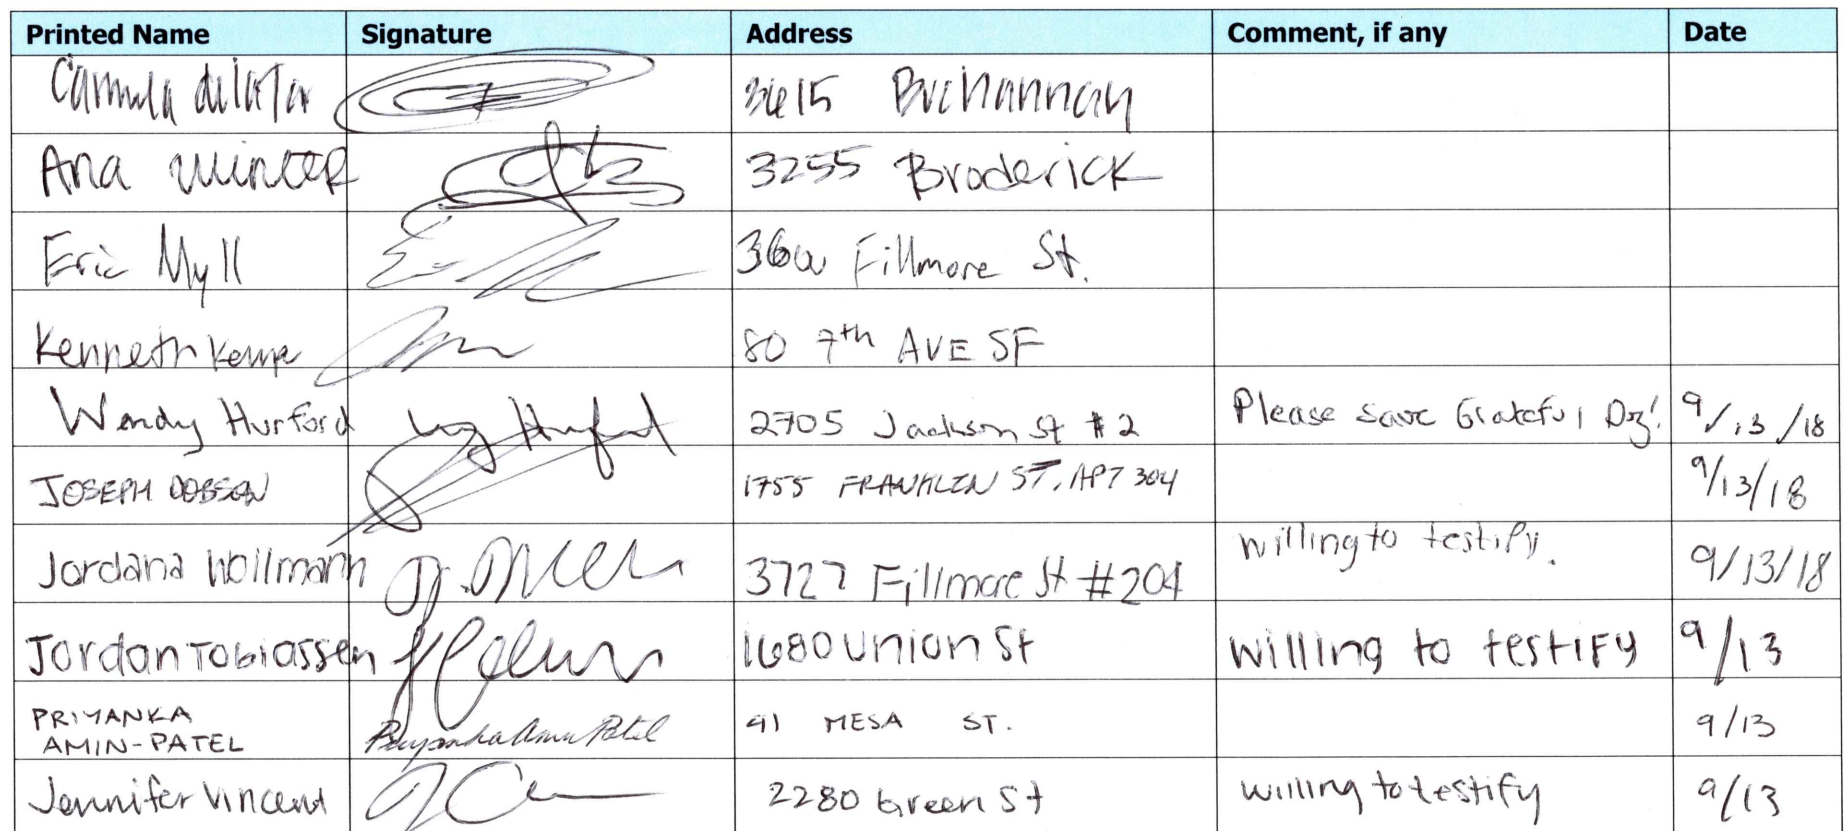 Printed Name Signature Address Comment, if any Date
3615 Buchannan
Ana Winter 3255 Broderick
Eric Myll Fillmore St.
Kenneth Kemp 80 7th AVE SF
Wendy Hurford Wendy Hurford 2705 Jackson St #2 Please save Grateful Dog! 9/13/18
JOSEPH DOBSON 1755 FRANKLIN ST. APT 304 9/13/18
Jordana Wollmann 3727 Fillmore St #204 willing to testify. 9/13/18
Jordan Tobiassen 1680 Union St willing to testify 9/13
PRIYANKA
AMIN-PATEL Priyanka Amin Patel 91 MESA ST. 9/13
Jennifer Vincent 2280 Green St willing to testify 9/13